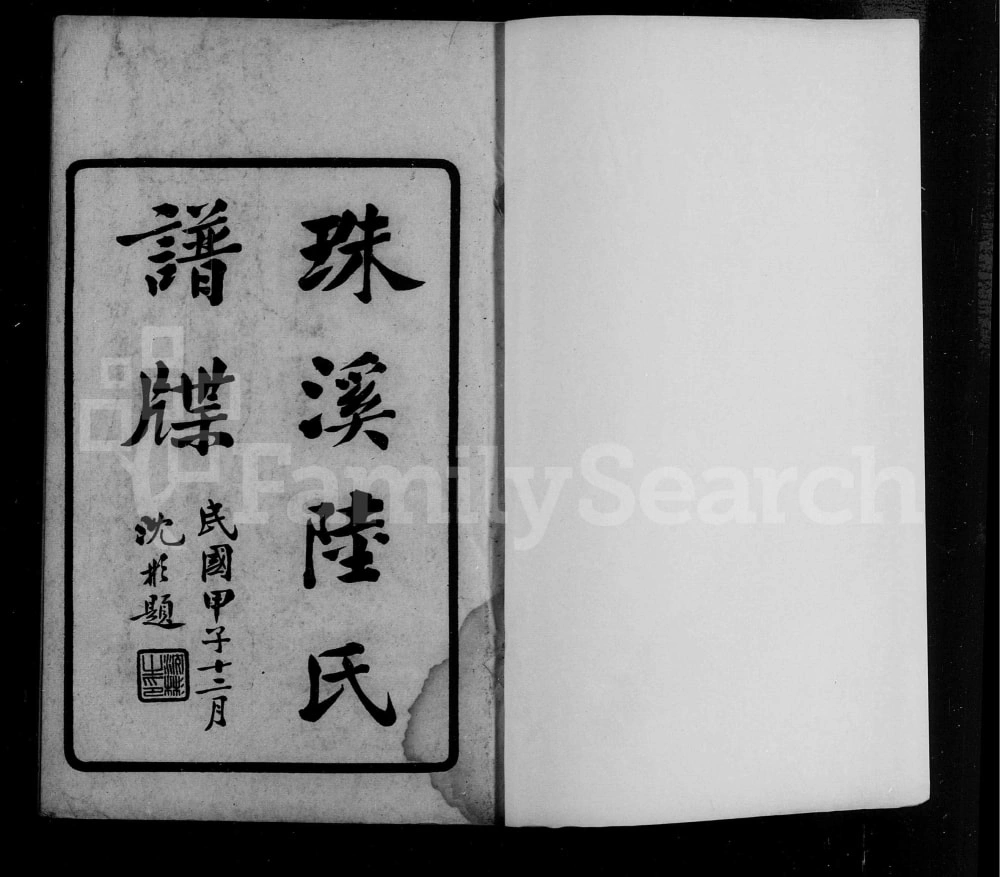 珠溪陸氏
譜牒
民國甲子十二月
沈彬題
沈彬之印
FamilySearch